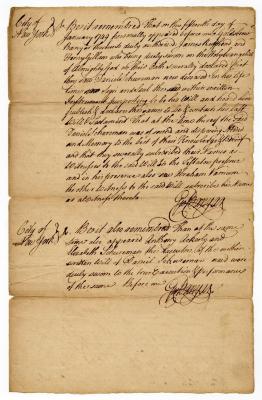 City of
New York ss. Be it remembered That on the fifteenth day of
January 1729 personally appeared before me
being thereunto duly authorized James
Henry Allan who being duly sworn on the Holy Evangelists
of Almighty God did severally declare that
they saw Daniel Schureman now deceased in his life
time sign and seal the within written
Instrument purporting to be his Will and heard him
publish & declare the same to be & contain his last
Will & Testament That at the time thereof the said
Daniel Schureman was of sound and disposing Mind
and Memory to the best of their knowledge & belief
and that they severally subscribed their Names as
Witnesses to the said Will in the Testators presence
and in his presence also saw Abraham
the other Witness to the said Will subscribe his Name
as a Witness thereto
City of
New York ss. Be it also remembered That at the same
time also appeared Anthony and
Elizabeth Schureman the Executors of the within
written Will of Daniel Schureman and were
duly sworn to the true Execution & performance
of the same Before me